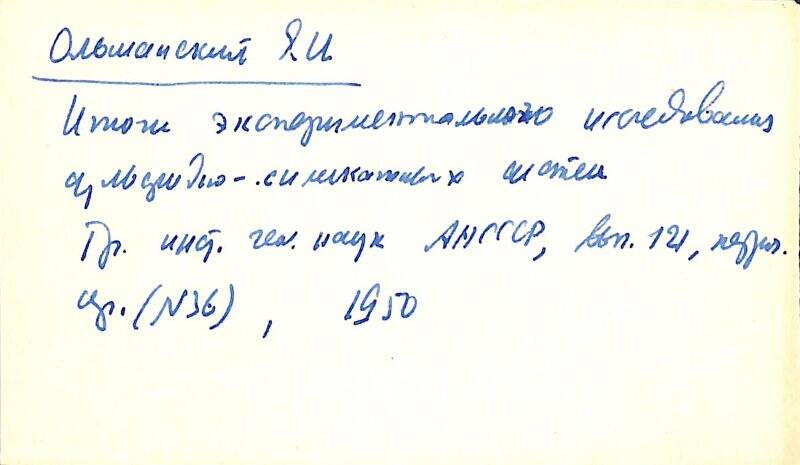 Ольшанский Я.И.
Итоги экспериментального исследования
сульфидно-силикатных систем
Тр. инст. геол. наук АН СССР, вып. 121, петрогр.
сер. (N36), 1950